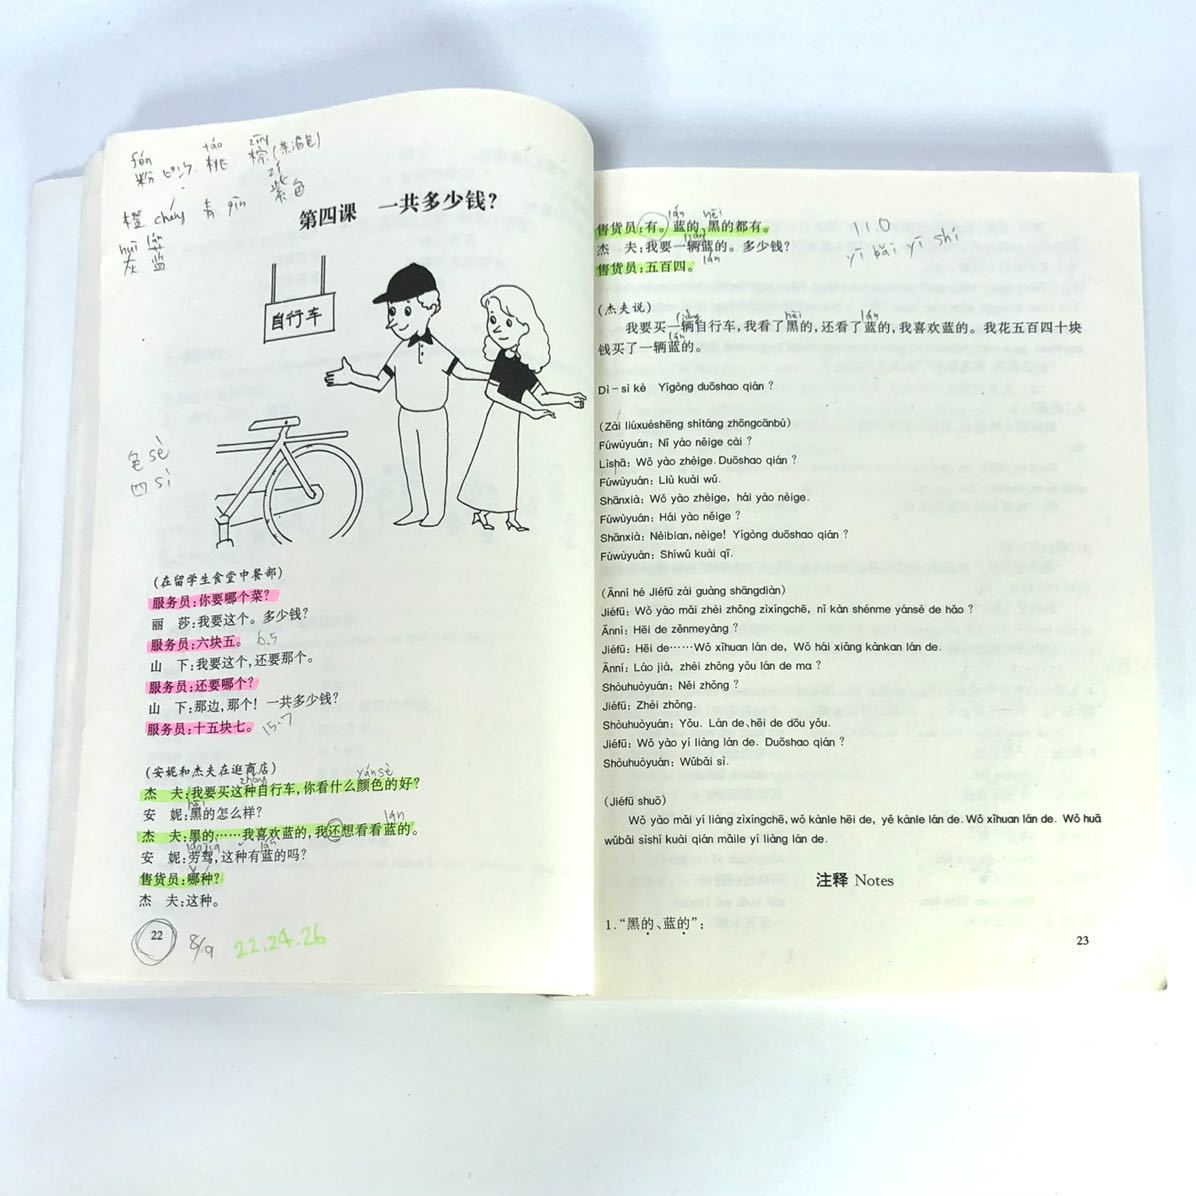 fěn táo zōng
粉 ピンク 桃 棕(茶渇色)
zǐ
橙 chéng 青 qīn 紫色
huī lán
灰 蓝
第四课 一共多少钱?
自行车
色 sè
四 sì
(在留学生食堂中餐部)
服务员:你要哪个菜?
丽 莎:我要这个。多少钱?
服务员:六块五。 6.5
山 下:我要这个,还要那个。
服务员:还要哪个?
山 下:那边,那个! 一共多少钱?
服务员:十五块七。 15.7
(安妮和杰夫在逛商店)
zhǒng yánsè
杰 夫:我要买这种自行车,你看什么颜色的好?
hēi
安 妮:黑的怎么样?
lán
杰 夫:黑的……我喜欢蓝的,我还想看看蓝的。
láojià lán
安 妮:劳驾,这种有蓝的吗?
售货员:哪种?
杰 夫:这种。
22 8/9 22.24.26
lán hēi
售货员:有。蓝的、黑的都有。 110
liàng
杰 夫:我要一辆蓝的。多少钱? yī bǎi yī shí
lán
售货员:五百四。
(杰夫说)
liàng hēi lán
我要买一辆自行车,我看了黑的,还看了蓝的,我喜欢蓝的。我花五百四十块
lán
钱买了一辆蓝的。
Dì-sì kè Yígòng duōshao qián ?
(Zài liúxuéshēng shítáng zhōngcānbù)
Fúwùyuán: Nǐ yào něige cài ?
Lìshā: Wǒ yào zhèige. Duōshao qián ?
Fúwùyuán: Liù kuài wǔ.
Shānxià: Wǒ yào zhèige, hái yào nèige.
Fúwùyuán: Hái yào něige ?
Shānxià: Nèibian, nèige! Yígòng duōshao qián ?
Fúwùyuán: Shíwǔ kuài qī.
(Ānní hé Jiéfū zài guàng shāngdiàn)
Jiéfū: Wǒ yào mǎi zhèi zhǒng zìxíngchē, nǐ kàn shénme yánsè de hǎo ?
Ānní: Hēi de zěnmeyàng ?
Jiéfū: Hēi de……Wǒ xǐhuan lán de, Wǒ hái xiǎng kànkan lán de.
Ānní: Láo jià, zhèi zhǒng yǒu lán de ma ?
Shòuhuòyuán: Něi zhǒng ?
Jiéfū: Zhèi zhǒng.
Shòuhuòyuán: Yǒu. Lán de、hēi de dōu yǒu.
Jiéfū: Wǒ yào yí liàng lán de. Duōshao qián ?
Shòuhuòyuán: Wǔbǎi sì.
(Jiéfū shuō)
Wǒ yào mǎi yí liàng zìxíngchē, wǒ kànle hēi de, yě kànle lán de. Wǒ xǐhuan lán de. Wǒ huā
wǔbǎi sìshí kuài qián mǎile yí liàng lán de.
注释 Notes
1. “黑的、蓝的”:
23